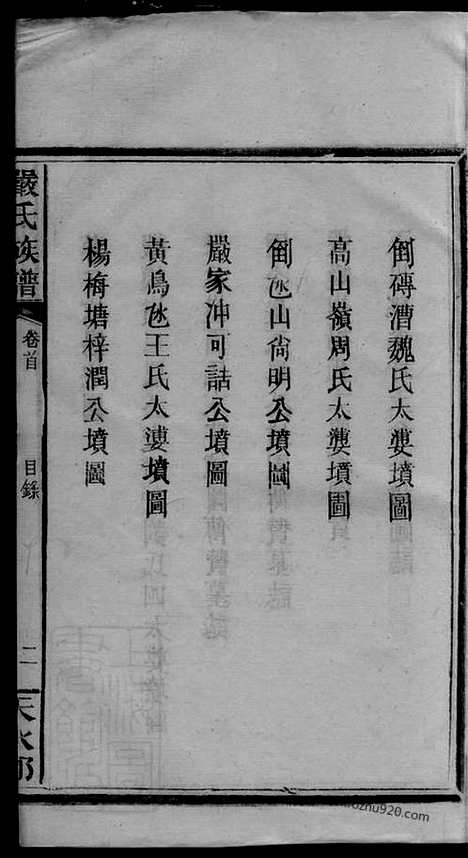 倒磚漕魏氏太婆墳圖
高山嶺周氏太婆墳圖
倒氹山尙明公墳圖
嚴家冲可詁公墳圖
黃鳥氹王氏太婆墳圖
楊梅塘梓潤公墳圖
嚴氏族譜
卷首
目錄
二
天水郡